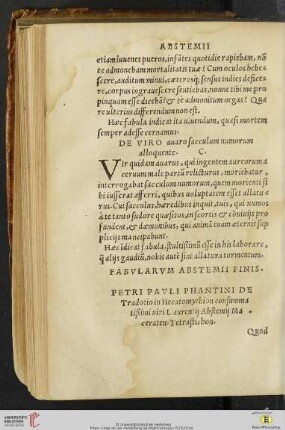 ABSTEMII
etiam iuuenes pueros, infātes quotidie rapiebam, nō
te admonebam mortalitatis tuæ? Cum oculos hebe
scere, auditum minui, cæterosq; sensus indies defice
re, corpus ingrauescere sentiebas, nonne tibi me pro
pinquam esse dicebā? & te admonitum negas? Qua
re vlterius differendum non est.
Hæc fabula indicat ita uiuendum, quasi mortem
semper adesse cernamus.
DE VIRO auaro sacculum numorum
alloquente. C.
VIr quidam auarus, qui ingentem aureorum a
ceruum male partū relicturus, moriebatur,
interrogabat sacculum numorum, quem moriens si
bi iusserat afferri, quibus uoluptatem esset allatu
rus. Cui sacculus, hæredibus inquit, tuis, qui numos
à te tanto sudore quæsitos, in scortis & cōuiuijs pro
fundent, & dæmonibus, qui animā tuam æternis sup
plicijs mancipabunt.
Hæc idicat fabula, stultissimū esse in his laborare,
q̄ alijs gaudiū, nobis autē sint allatura tormentum.
FABVLARVM ABSTEMII FINIS.
PETRI PAVLI PHANTINI DE
Tradotio in Hecatomythion consumma
tissimi uiri Laurentij Abstemij Ma
ceratēn. Tetrastichon.
Quod
UNIVERSITÄTS-
BIBLIOTHEK
HEIDELBERG
© Universitätsbibliothek Heidelberg